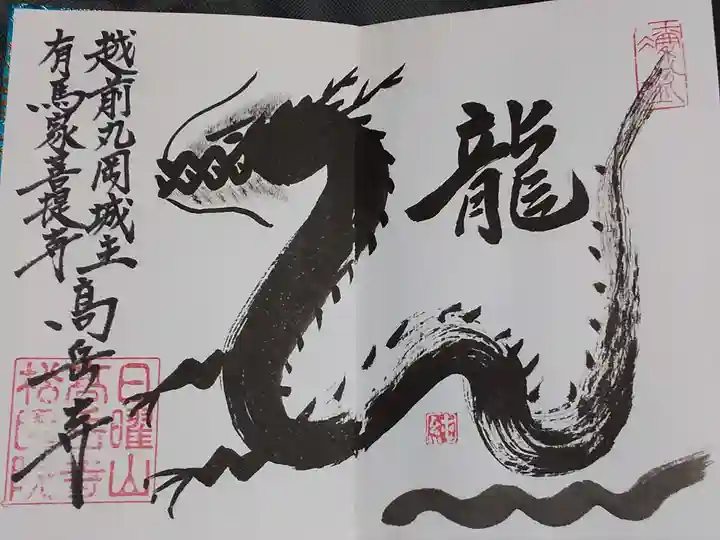 龍
越前丸岡城主
有馬家菩提寺
高岳寺
日曜山
高岳寺